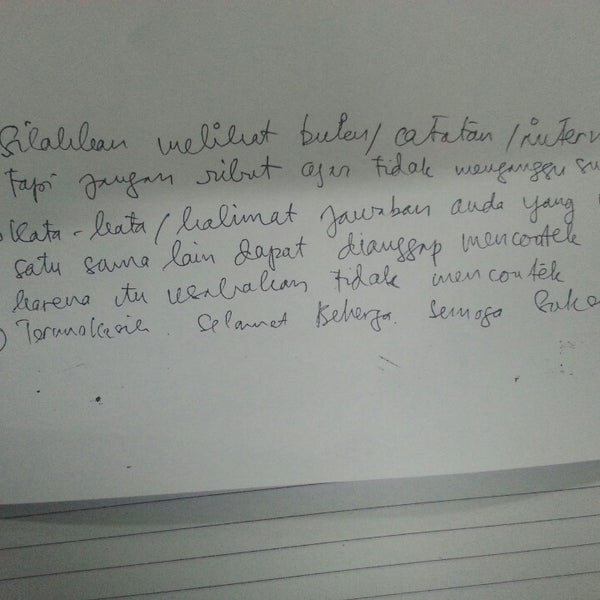 Silahkan melihat buku / catatan / intern
tapi jangan ribut agar tidak mengganggu su
Kata-kata / kalimat jawaban anda yang
satu sama lain dapat dianggap mencontek
karena itu usahakan tidak mencontek
Terimakasih. Selamat Bekerja. Semoga Suks